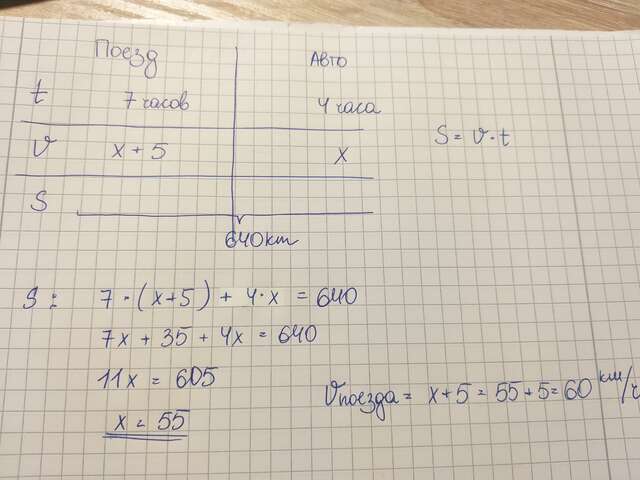 Поезд Авто
t 7 часов 4 часа
v x + 5 x
S = v · t
S
640 km
S : 7 · (x+5) + 4·x = 640
7x + 35 + 4x = 640
11x = 605
x = 55
Vпоезда = x+5 = 55+5 = 60 км/ч